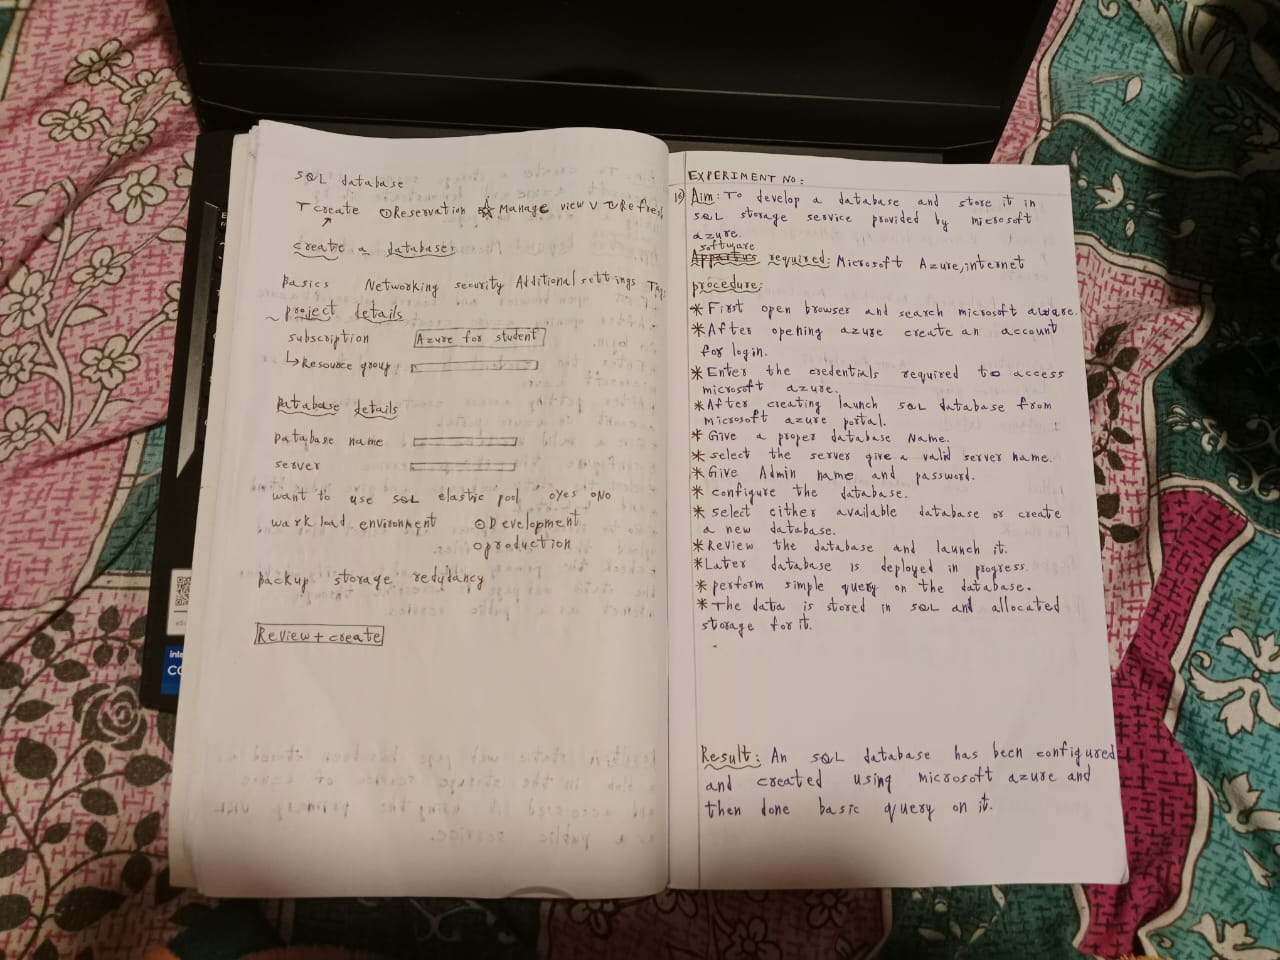 SQL database
create Reservation Manage view v Refresh
create a database:
Basics Networking security Additional settings Tags
project details
subscription Azure for student
Resource group
Database details
Database name
server
want to use SQL elastic pool oyes oNo
work load environment Development
production
Backup storage redutancy
Review + create
EXPERIMENT NO:
Aim: To develop a database and store it in
SQL storage service provided by microsoft
azure.
software
required: Microsoft Azure, internet
procedure:
* First open browser and search microsoft azure.
* After opening azure create an account
for login.
* Enter the credentials required to access
microsoft azure.
* After creating launch SQL database from
Microsoft azure portal.
* Give a proper database Name.
* select the server give a valid server name.
* Give Admin name and password.
* configure the database.
* select either available database or create
a new database.
* Review the database and launch it.
* Later database is deployed in progress.
* perform simple query on the database.
* The data is stored in SQL and allocated
storage for it.
Result: An SQL database has been configured
and created using microsoft azure and
then done basic query on it.